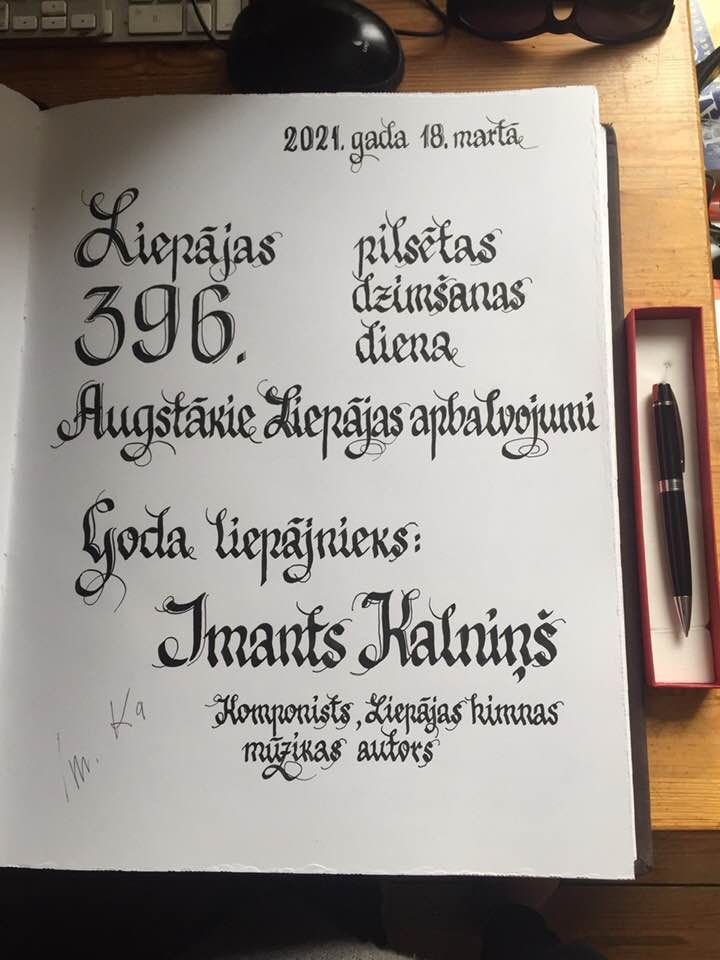 2021. gada 18. martā
Liepājas pilsētas
396. dzimšanas
diena
Augstākie Liepājas apbalvojumi
Goda liepājnieks:
Imants Kalniņš
Komponists, Liepājas himnas
mūzikas autors
Im. Ka